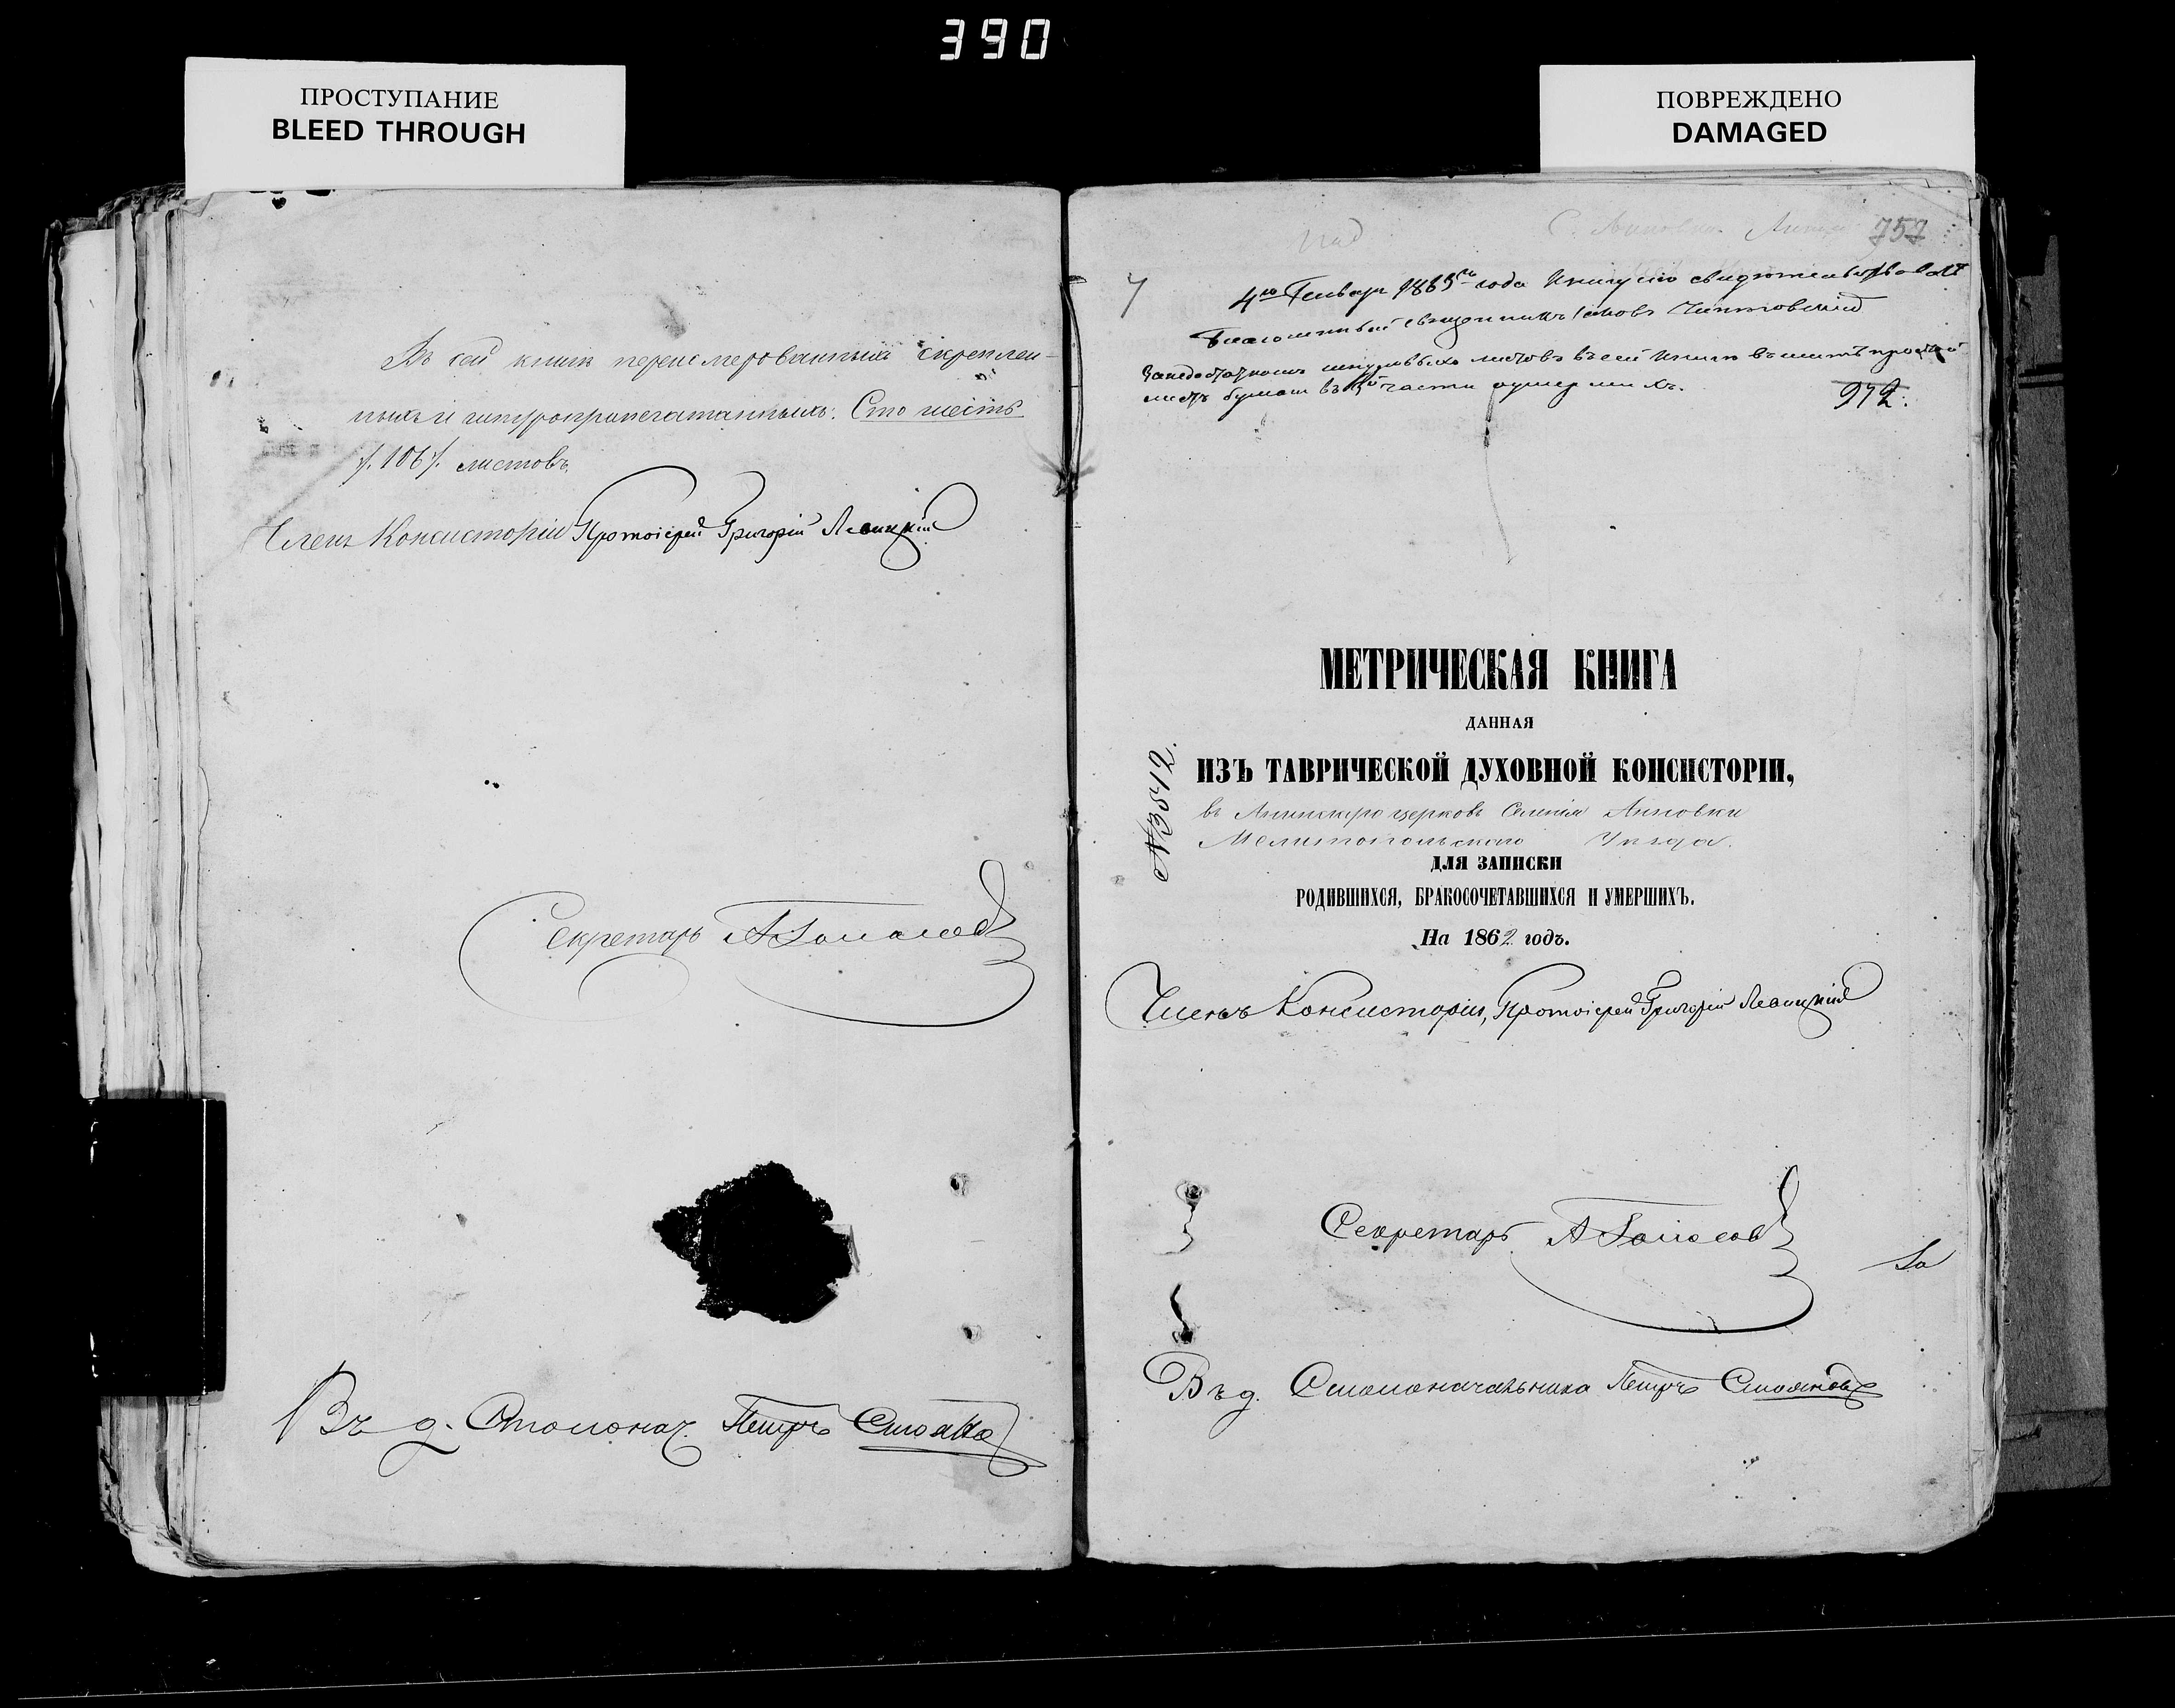 390
ПРОСТУПАНИЕ
BLEED THROUGH
Въ сей книгѣ перенумерованныхъ скреплен-
ныхъ и шнуроприпечатанныхъ. Сто шесть
/.106/. листовъ.
Членъ Консисторіи Протоіерей Григорій Левицкій
Секретарь
Въ д. Столонач. Петръ
ПОВРЕЖДЕНО
DAMAGED
757
4го Генваря года Книгу сію свидѣтельствовалъ
Благочинный священникъ Іаковъ
листовъ въ сей книгѣ
листъ бумаги въ части умершихъ.
972.
МЕТРИЧЕСКАЯ КНИГА
ДАННАЯ
ИЗЪ ТАВРИЧЕСКОЙ ДУХОВНОЙ КОНСИСТОРІИ,
въ церковь Селенія Анновки
Мелитопольскаго Уѣзда.
№ 3542.
ДЛЯ ЗАПИСКИ
РОДИВШИХСЯ, БРАКОСОЧЕТАВШИХСЯ И УМЕРШИХЪ.
На 1862 годъ.
Членъ Консисторіи, Протоіерей Григорій Левицкій
Секретарь
Въ д. Столоначальника Петръ Стояновъ